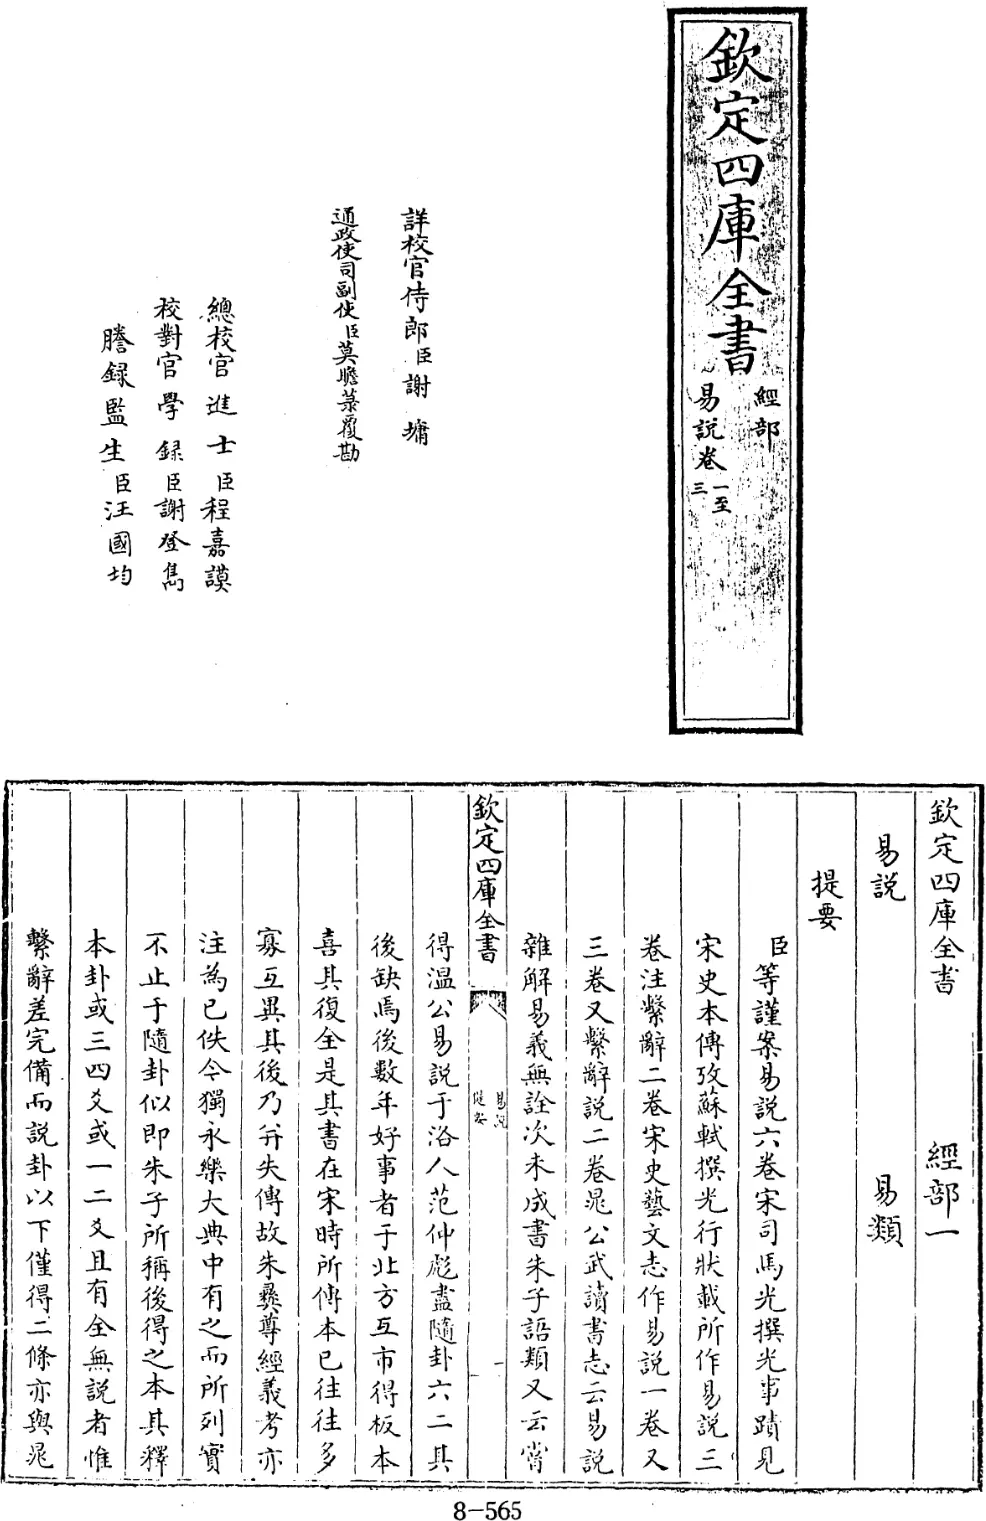 欽定四庫全書
經部
易説卷一至三
詳校官侍郎臣謝墉
通政使司副使臣莫瞻菉覆勘
總校官進士臣程嘉謨
校對官學録臣謝登雋
謄録監生臣汪國均
欽定四庫全書 經部一
易説 易類
提要
臣等謹案易説六卷宋司馬光撰光事蹟見
宋史本傳攷蘇軾撰光行狀載所作易説三
卷注繫辭二卷宋史藝文志作易説一卷又
三卷又繫辭説二卷晁公武讀書志云易説
雜解易義無詮次未成書朱子語類又云嘗
欽定四庫全書
易説
提要
一
得温公易説于洛人范仲彪盡隨卦六二其
後缺焉後數年好事者于北方互市得板本
喜其復全是其書在宋時所傳本已往往多
寡互異其後乃并失傳故朱彝尊經義考亦
注為已佚今獨永樂大典中有之而所列實
不止于隨卦似即朱子所稱後得之本其釋
本卦或三四爻或一二爻且有全無説者惟
繫辭差完備而説卦以下僅得二條亦與晁
8-565